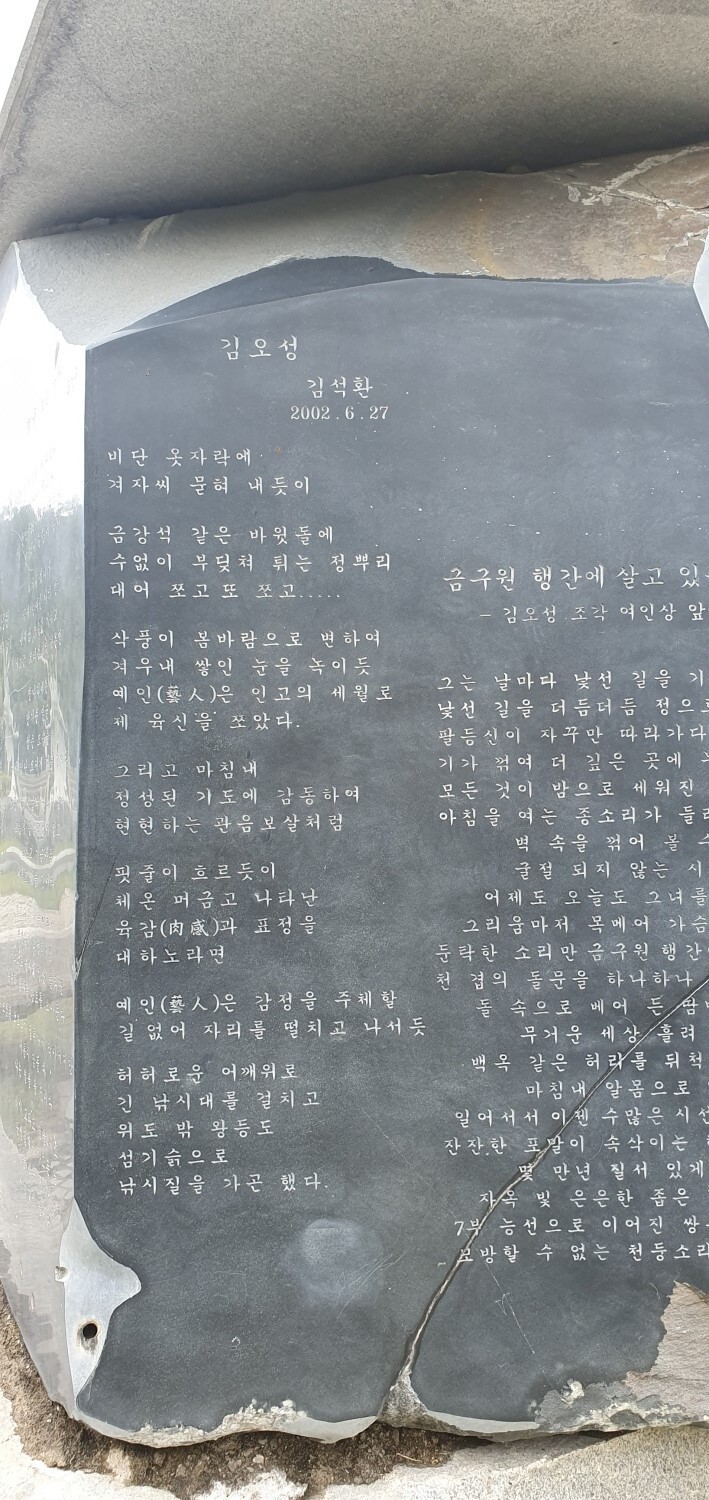 김오성
김석환
2002.6.27
비단 옷자락에
겨자씨 묻혀 내듯이
금강석 같은 바윗돌에
수없이 부딪쳐 튀는 정뿌리
대어 쪼고 또 쪼고.....
삭풍이 봄바람으로 변하여
겨우내 쌓인 눈을 녹이듯
예인(藝人)은 인고의 세월로
제 육신을 쪼았다.
그리고 마침내
정성된 기도에 감동하여
현현하는 관음보살처럼
핏줄이 흐르듯이
체온 머금고 나타난
육감(肉感)과 표정을
대하노라면
예인(藝人)은 감정을 주체할
길 없어 자리를 떨치고 나서듯
허허로운 어깨위로
긴 낚시대를 걸치고
위도 밖 왕등도
섬기슭으로
낚시질을 가곤 했다.
금구원 행간에 살고 있
- 김오성 조각 여인상 앞
그는 날마다 낯선 길을 기
낯선 길을 더듬더듬 정으로
팔등신이 자꾸만 따라가다
기가 꺾여 더 깊은 곳에
모든 것이 밤으로 세워진
아침을 여는 종소리가 들
벽 속을 꺾어 볼 수
굴절 되지 않는 시
어제도 오늘도 그녀를
그리움마저 목메어 가슴
둔탁한 소리만 금구원 행간
천 겹의 돌문을 하나하나
돌 속으로 베어 든 땀
무거운 세상 흘려
백옥 같은 허리를 뒤척
마침내 알몸으로
일어서서 이젠 수많은 시선
잔잔한 포말이 속삭이는
몇 만년 질서 있게
자옥 빛 은은한 좁은
7부 능선으로 이어진 쌍
모방할 수 없는 천둥소리